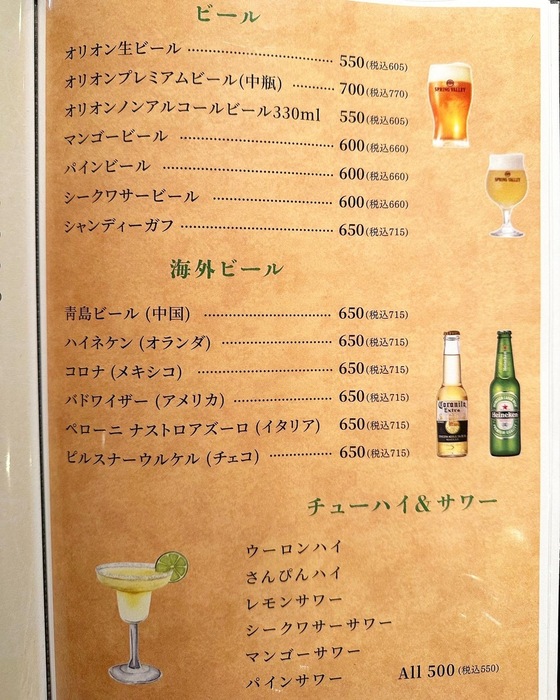 ビール
オリオン生ビール 550(税込605)
オリオンプレミアムビール(中瓶) 700(税込770)
オリオンノンアルコールビール330ml 550(税込605)
マンゴービール 600(税込660)
パインビール 600(税込660)
シークワサービール 600(税込660)
シャンディーガフ 650(税込715)
SPRING VALLEY
SPRING VALLEY
海外ビール
青島ビール (中国) 650(税込715)
ハイネケン (オランダ) 650(税込715)
コロナ (メキシコ) 650(税込715)
バドワイザー (アメリカ) 650(税込715)
ペローニ ナストロアズーロ (イタリア) 650(税込715)
ピルスナーウルケル (チェコ) 650(税込715)
Coronita
Extra
Heineken
チューハイ&サワー
ウーロンハイ
さんぴんハイ
レモンサワー
シークワサーサワー
マンゴーサワー
パインサワー
All 500 (税込550)